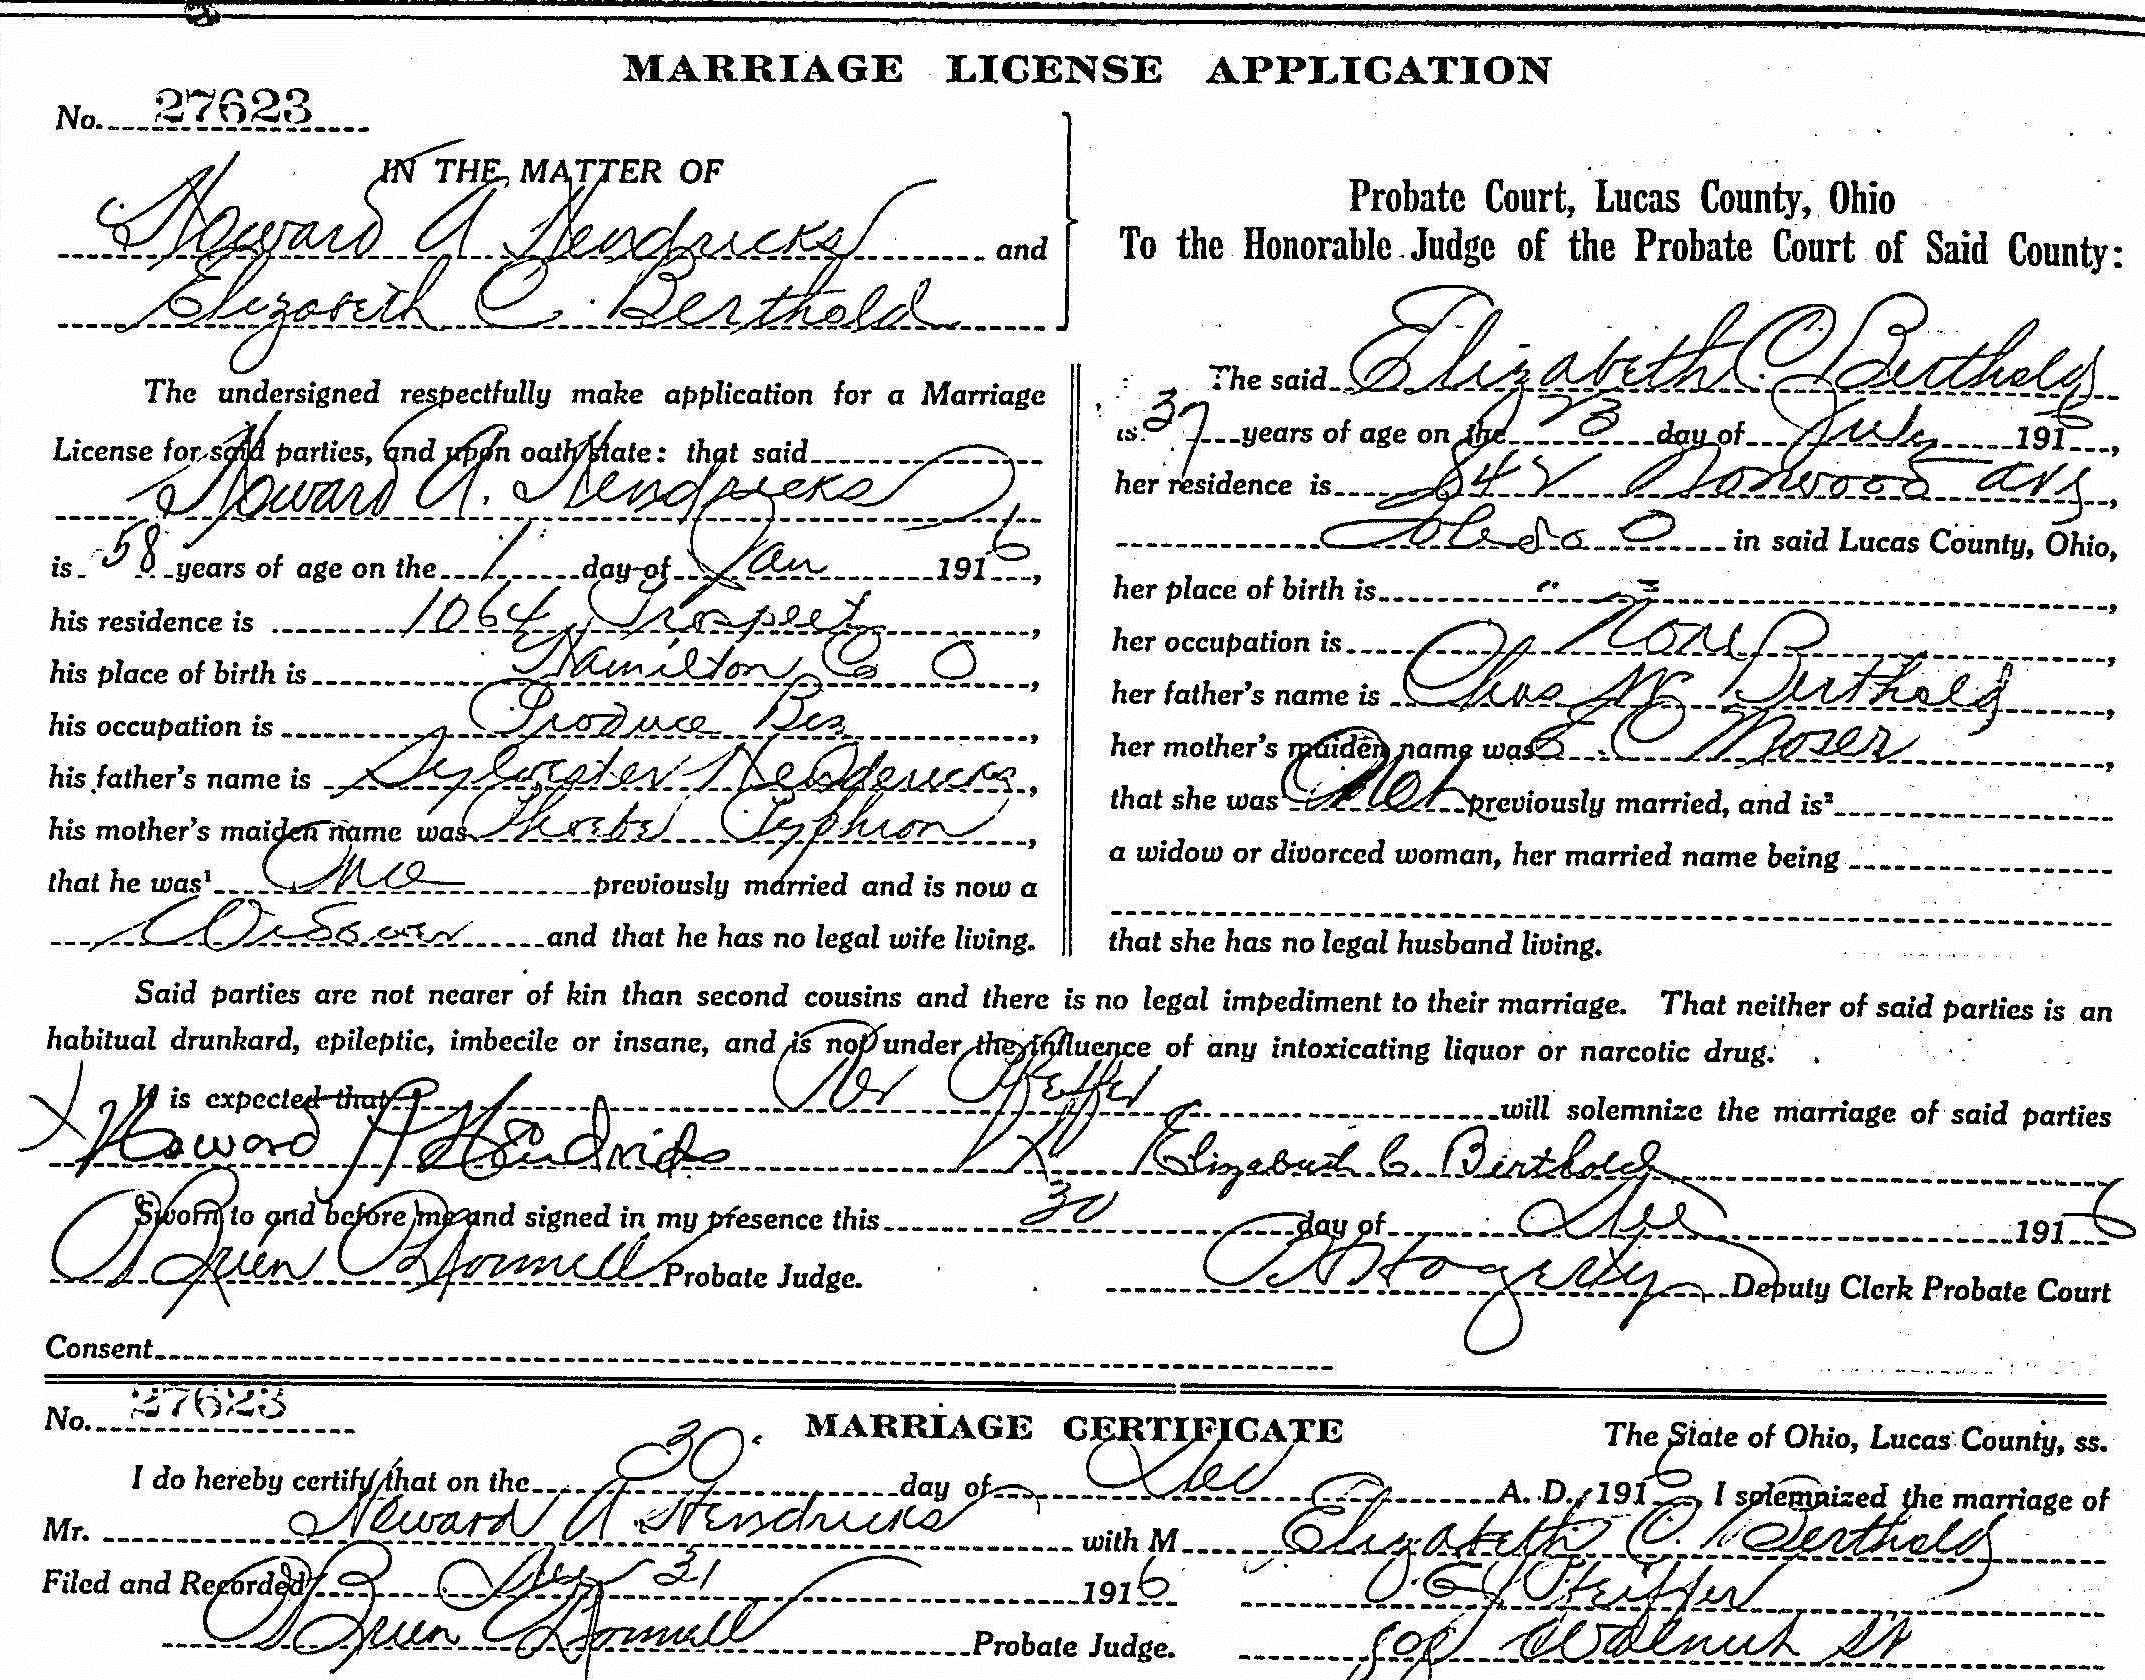 MARRIAGE LICENSE APPLICATION
No. 27623
IN THE MATTER OF
Howard A Hendricks and
Elizabeth C. Berthold
Probate Court, Lucas County, Ohio
To the Honorable Judge of the Probate Court of Said County:
The undersigned respectfully make application for a Marriage
License for said parties, and upon oath state: that said
Howard A. Hendricks
is 58 years of age on the 1 day of Jan 1916,
his residence is 1064 Prospect,
his place of birth is Hamilton Co O,
his occupation is Produce Bus,
his father's name is Sylvester Hendericks,
his mother's maiden name was Phoebe,
that he was¹ once previously married and is now a
Widower and that he has no legal wife living.
The said Elizabeth C Berthold
is 37 years of age on the 23 day of July 1916,
her residence is 842 Norwood Ave,
Toledo O in said Lucas County, Ohio,
her place of birth is " =,
her occupation is None,
her father's name is Chas W Berthold,
her mother's maiden name was E C Moser,
that she was Not previously married, and is²
a widow or divorced woman, her married name being
that she has no legal husband living.
Said parties are not nearer of kin than second cousins and there is no legal impediment to their marriage. That neither of said parties is an
habitual drunkard, epileptic, imbecile or insane, and is not under the influence of any intoxicating liquor or narcotic drug.
It is expected that Rev Pfeiffer will solemnize the marriage of said parties
X Howard A Hendricks X Elizabeth C. Berthold
Sworn to and before me and signed in my presence this 30 day of Dec 1916
O'Brien O'Donnell Probate Judge. Hogerty Deputy Clerk Probate Court
Consent
No. 27623
MARRIAGE CERTIFICATE The State of Ohio, Lucas County, ss.
I do hereby certify that on the 30 day of Dec A. D., 1916, I solemnized the marriage of
Mr. Howard A Hendricks with M Elizabeth C. Berthold
Filed and Recorded Dec 31 1916 Pfeiffer
O'Brien O'Donnell Probate Judge. Walnut St